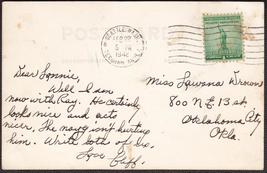 POST CARD
SEATTLE, WASH.
FEB 22
5 PM
1942
TERMINAL A.
Dear Lonnie,
Well I am
now with Ray. He certainly
looks nice and acts
nicer. The navy isn't hurting
him. Write both of us.
Love
Jeff.
Miss Lawona Brown
800 N.E. 13 st.
Oklahoma City
Okla.